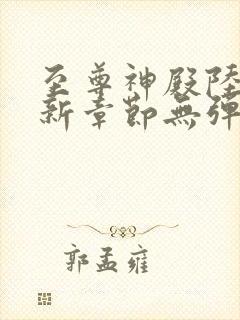 至尊神殿陸
新章節無彈
郭孟雍